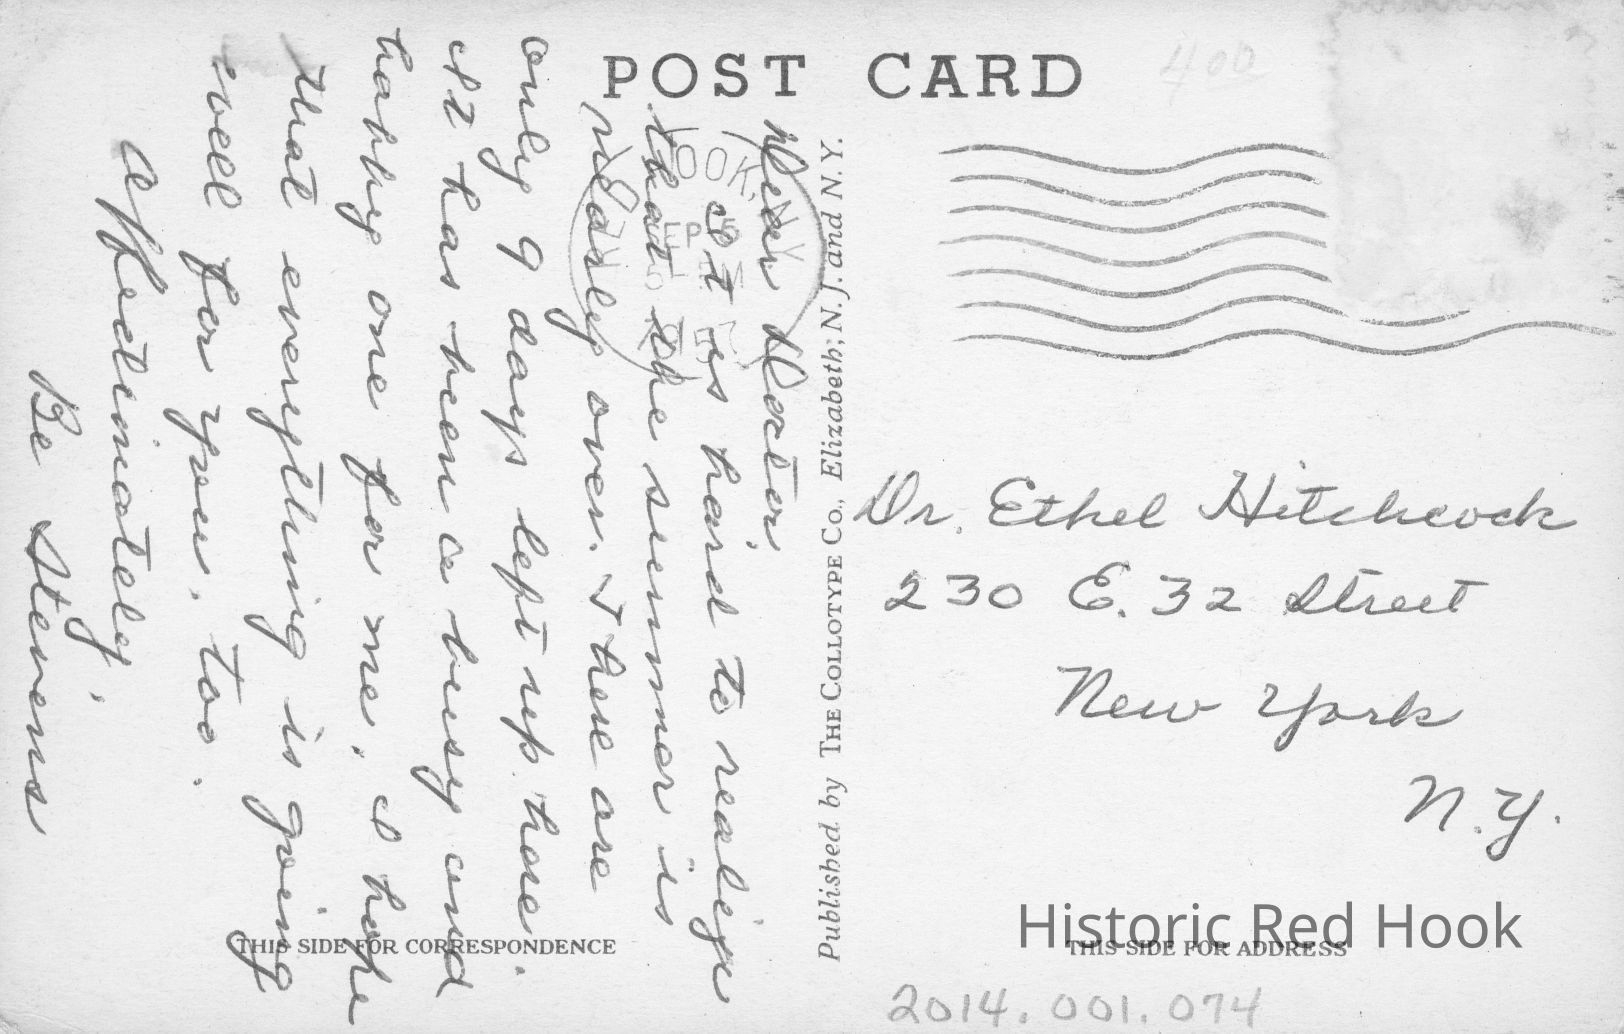 POST CARD
400
Dear Doctor
It is hard to realize
that the summer is
nearly over. There are
only 9 days left up here.
It has been a busy and
happy one for me. I hope
that everything is going
well for you, too.
Affectionately,
Be Stevens
THIS SIDE FOR CORRESPONDENCE
Published by THE COLLOTYPE CO., Elizabeth, N. J. and N. Y.
OOK, N.Y.
Dr. Ethel Hitchcock
230 E. 32 Street
New York
N.Y.
THIS SIDE FOR ADDRESS
Historic Red Hook
2014.001.074